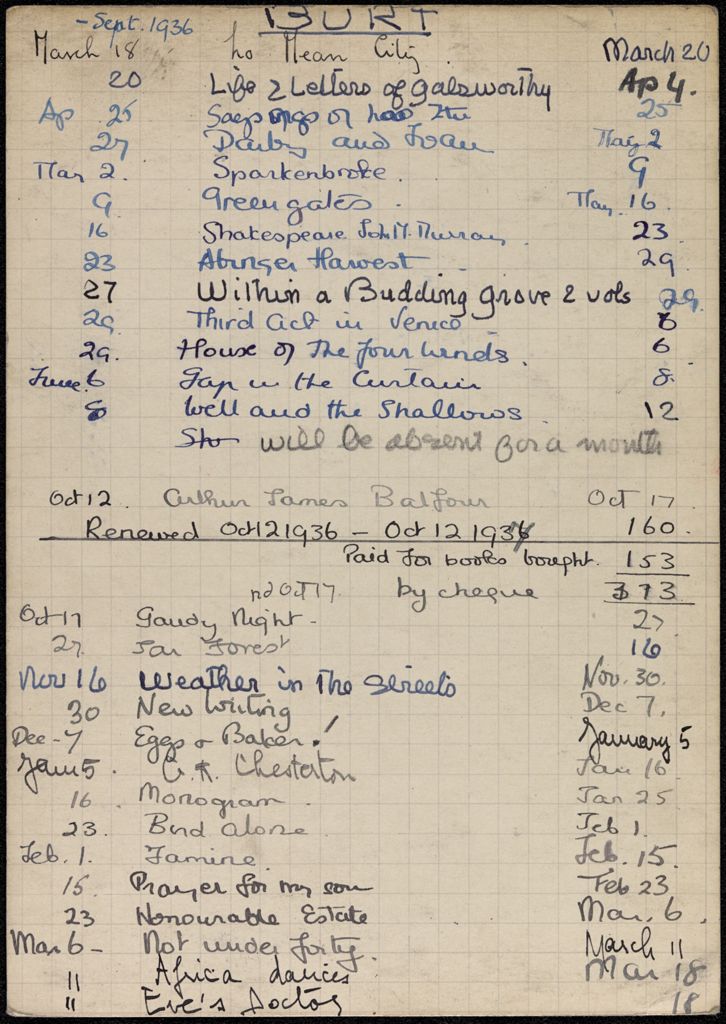 BURT
- Sept. 1936
March 18 No Mean City. March 20
20 Life & Letters of Galsworthy Ap 4.
Ap 25 Sayings of Lao Tzu 25
27 Darby and Joan May 2
May 2. Sparkenbroke. 9
9 Greengates. May 16
16 Shakespeare J.M. Murray. 23
23 Abinger Harvest. 29
27 Within a Budding grove 2 vols 29.
29 Third Act in Venice 6
29. House of The four winds. 6
June 6 Gap in the Curtain 8.
8 Well and the Shallows. 12
will be absent for a month
Oct 12. Arthur James Balfour Oct 17
Renewed Oct 12 1936 - Oct 12 1937 160.
Paid for books bought. 153
Oct 17 by cheque 313
Oct 17 Gaudy Night - 27
27. Far Forest 16
Nov 16 Weather in The Streets Nov. 30.
30 New Writing Dec 7.
Dec - 7 Eggs & Baker! January 5
Jan 5. G. K. Chesterton Jan 16
16. Monogram. Jan 25
23. Bird alone Feb 1.
Feb. 1. Famine. Feb. 15.
15. Prayer for my son Feb 23
23 Honourable Estate Mar. 6.
Mar 6 - Not under forty. March 11
11 Africa dances Mar 18
" Eve's Doctor 18